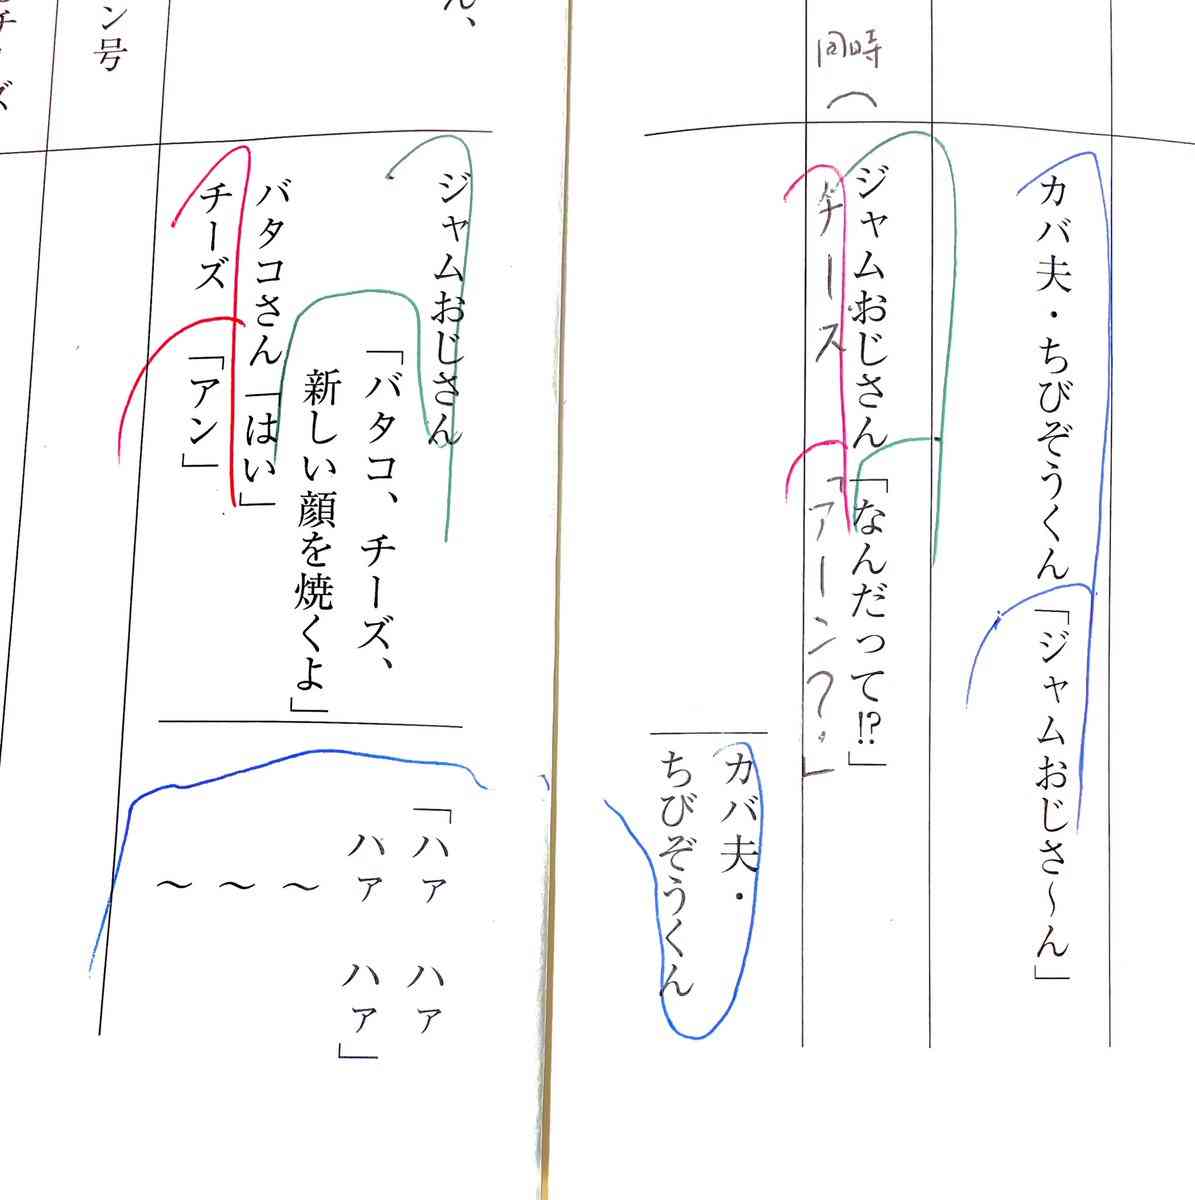 カバ夫・ちびぞうくん「ジャムおじさ〜ん」
ジャムおじさん「なんだって!?」
同時(
チーズ「アーン?」
カバ夫・
ちびぞうくん
ん、
ジャムおじさん
「バタコ、チーズ、
新しい顔を焼くよ」
バタコさん「はい」
チーズ「アン」
「ハァ ハァ
ハァ ハァ」
〜
〜
〜
ン号